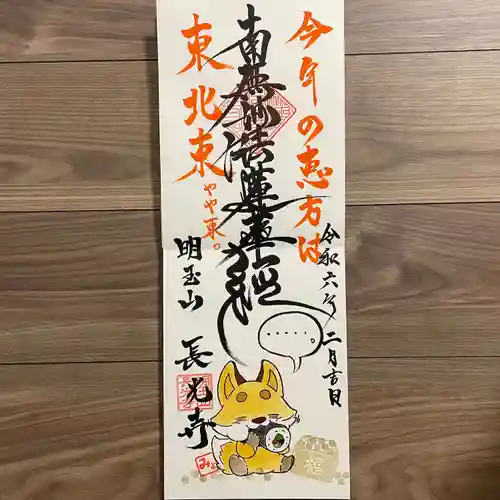 今年の恵方は
南無妙法蓮華経
東北東
やや東。
令和六年二月吉日
明玉山 長光寺
……。
福